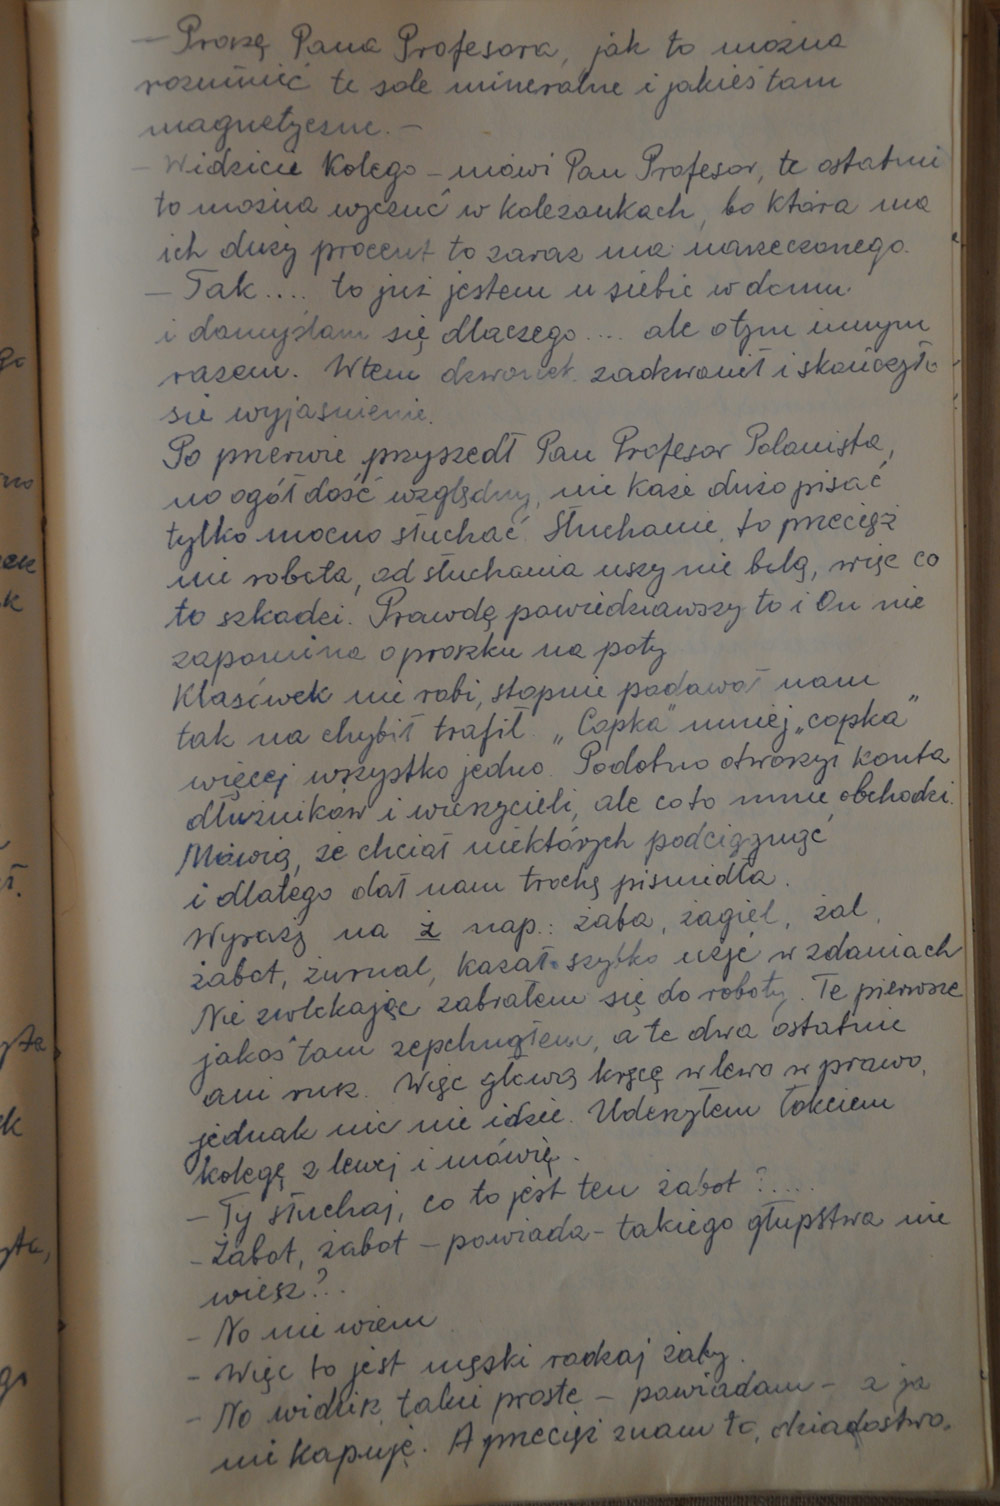 — Proszę Pana Profesora, jak to można
rozumieć te sole mineralne i jakieś tam
magnetyczne. —
— Widzicie Kolego – mówi Pan Profesor, te ostatnie
to można wyczuć w koleżankach, bo która ma
ich duży procent to zaraz ma narzeczonego.
— Tak .... to już jestem u siebie w domu
i domyślam się dlaczego .... ale o tym innym
razem. Wtem dzwonek zadzwonił i skończyło
się wyjaśnienie.
Po przerwie przyszedł Pan Profesor Polonista,
no ogół dość względny, nie każe dużo pisać
tylko mocno słuchać. Słuchanie, to przecież
nie robota, od słuchania uszy nie bolą, więc co
to szkodzi. Prawdę powiedziawszy to i On nie
zapomina o proszku na poty
Klasówek nie robi, stopnie podawał nam
tak na chybił trafił. „Capka" mniej „capka"
więcej wszystko jedno. Podobno otworzył konta
dłużników i wierzycieli, ale co to mnie obchodzi.
Mówią, że chciał niektórych podciągnąć
i dlatego dał nam trochę pismidła.
Wyrazy na ż nap.: żaba, żagiel, żal,
żabot, żurnal, kazał szybko użyć w zdaniach
Nie zwlekając zabrałem się do roboty. Te pierwsze
jakoś tam zepchnąłem, a te dwa ostatnie
ani rusz. Więc głową kręcę w lewo w prawo,
jednak nic nie idzie. Uderzyłem łokciem
kolegę z lewej i mówię.
– Ty słuchaj, co to jest ten żabot?....
– Żabot, żabot – powiada – takiego głupstwa nie
wiesz?.
– No nie wiem
– Więc to jest męski rodzaj żaby.
– No widzisz, takie proste – powiadam – a ja
nie kapuję. A przecież znam to, dziadostwo,